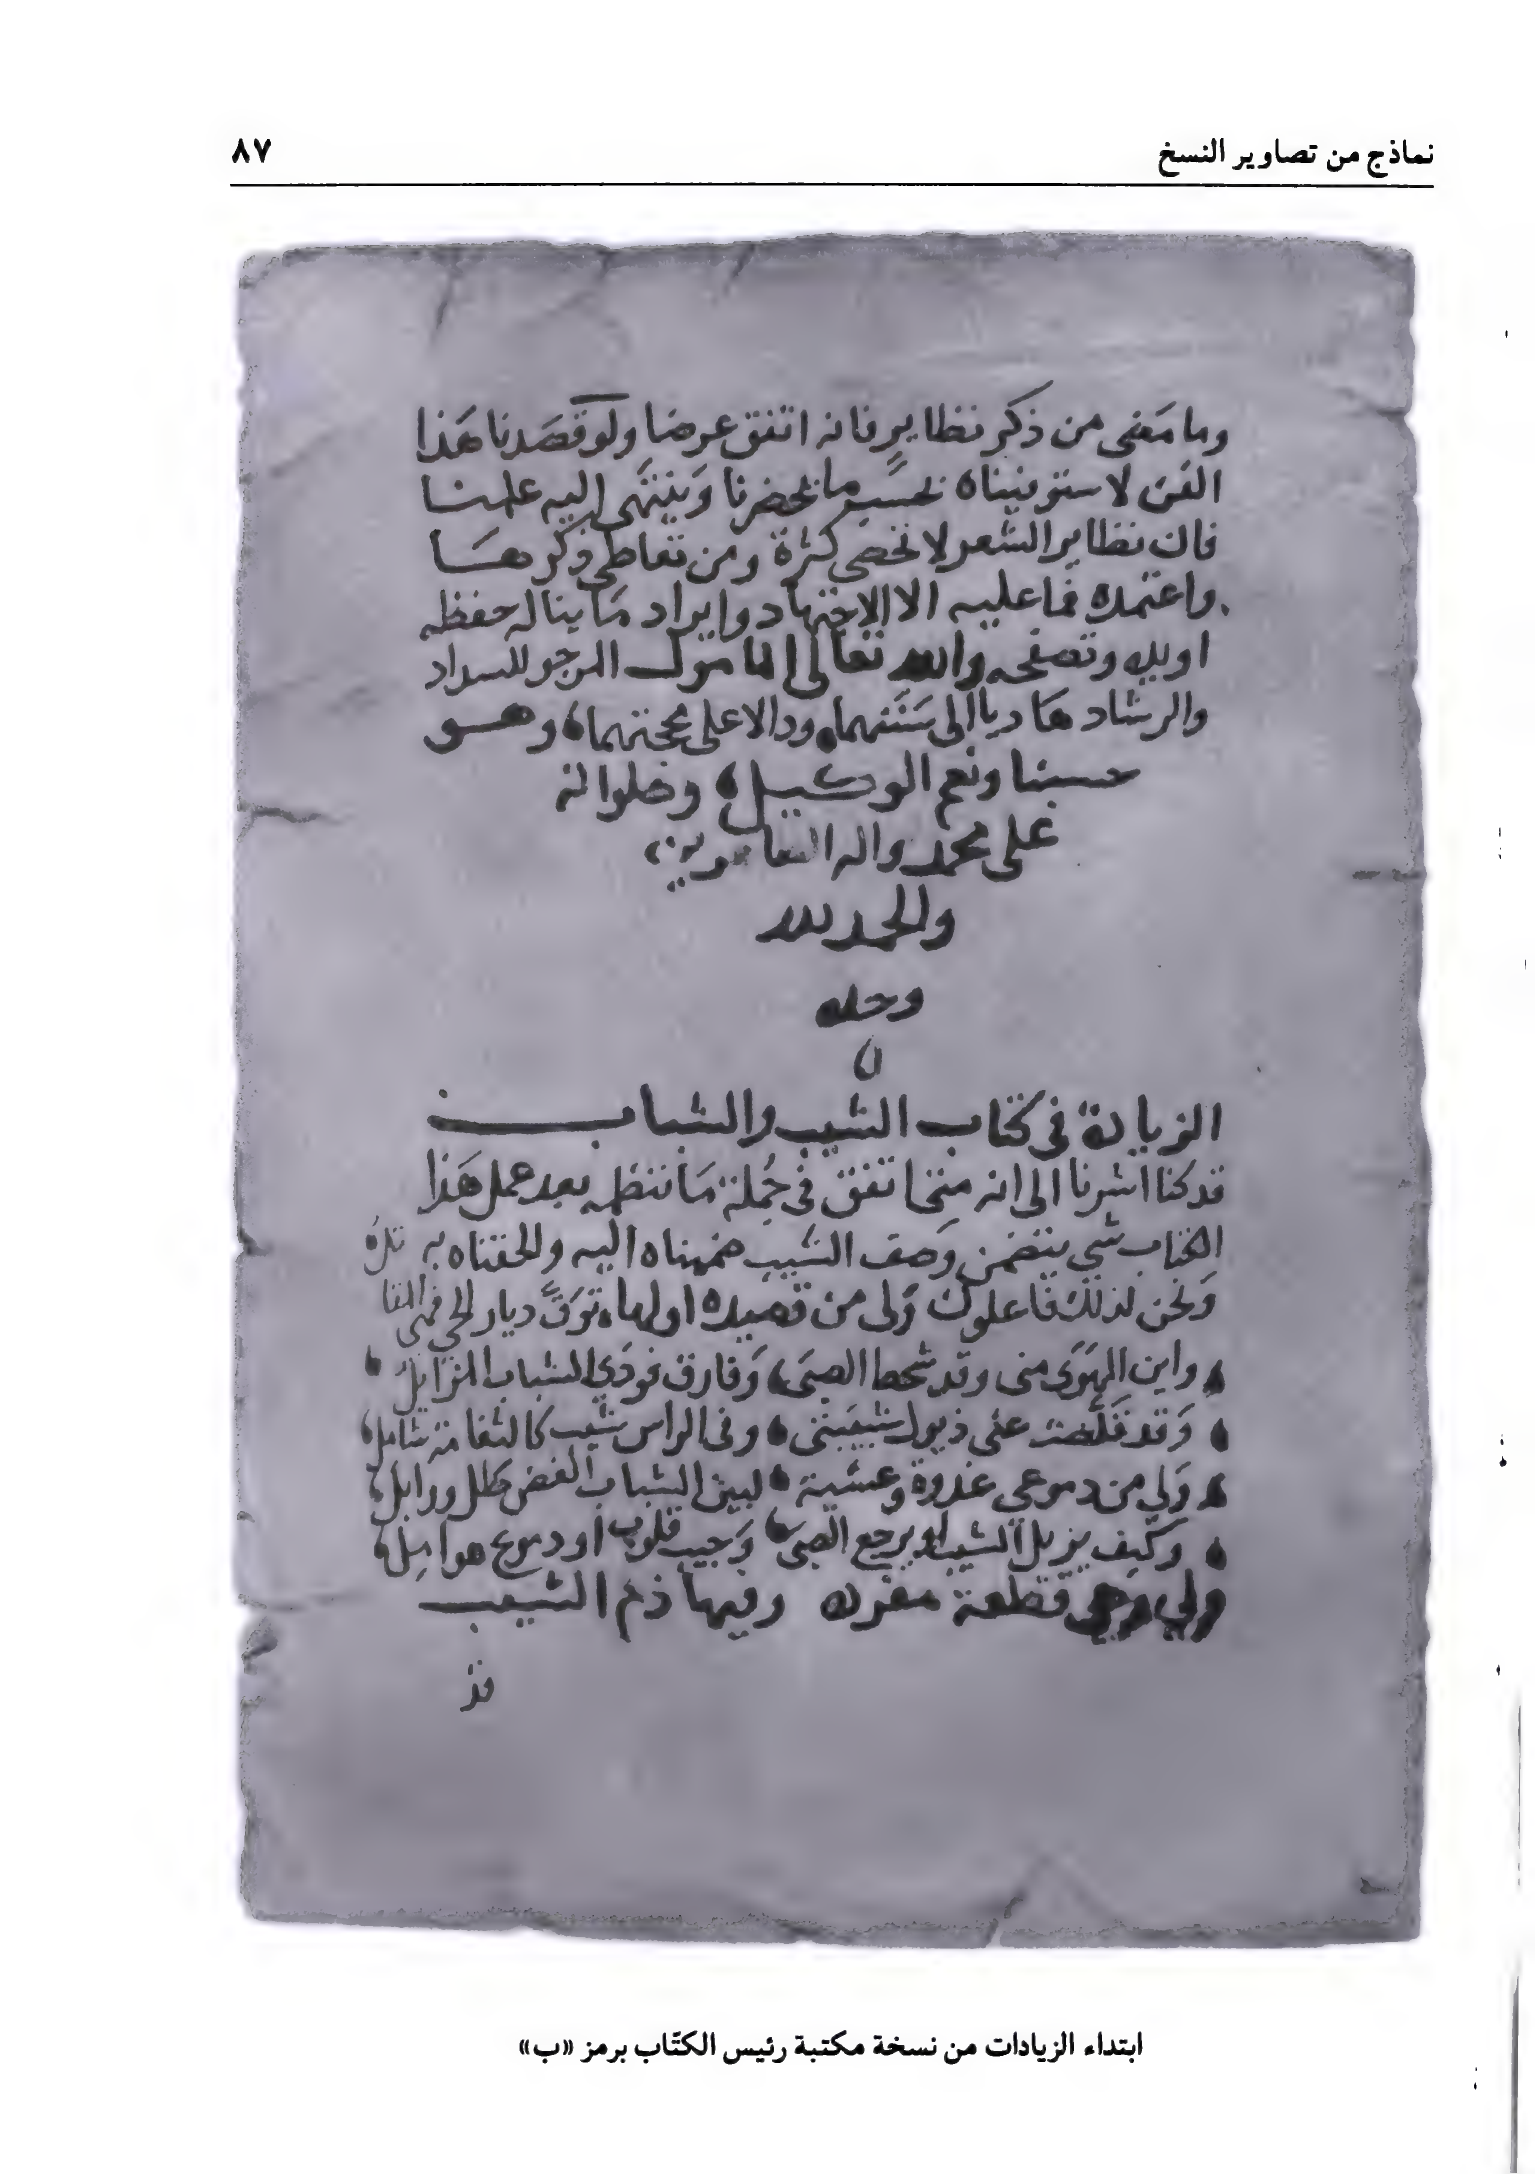 نماذج من تصاوير النسخ ٨٧
وما مَضى من ذكر نظايرٍ فانه اتفق عرضا ولو قصَدنا هَذا
الفن لاستوفيناه بحسَب ما يحضرنا وَينتهى اليه علمنا
فان نظاير الشعر لا تحصى كثرة ومن تعاطى ذكرها
واعتمده فما عليه الا الاجتهاد وايراد مَا يناله حفظه
او يده وتصفحه والله تعالى المامول المرجو للسداد
والرشاد هَاديا الى سَنَنهما ودالا على محجتهما وهو
حسبنا ونعم الوكيل وصلواته
على محمد واله الطاهرين
والحمد لله
وحده
الزيادة في كتاب الشيب والشباب
قد كنا اشرنا الى انه متى اتفق في جُملة مَا ننظمه بعد عمل هَذا
الكتاب شي يتضمن وَصف الشيب ضممناه اليه والحقناه به
وَنحن لذلك فاعلون وَلى من قصيده اولها توَقَّ ديار الحي فهى المقا
واين الهَوَى منى وقد شحط الصبَى وَفارق فودَي الشباب المزَايلُ
وَقد قَلصَت عنى ذيول شبيبتى وفى الراس شيب كالثغامة شامل
وَلي من دموعي غدوة وعشية لبين الشباب الغض طل ووابل
وكيف يزيل الشيب او يرجع الصبَى وَجيب قلوب او دموع هوامِل
ولي وهي قطعة مفرده وفيها ذم الشيب
ابتداء الزيادات من نسخة مكتبة رئيس الكتّاب برمز «ب»